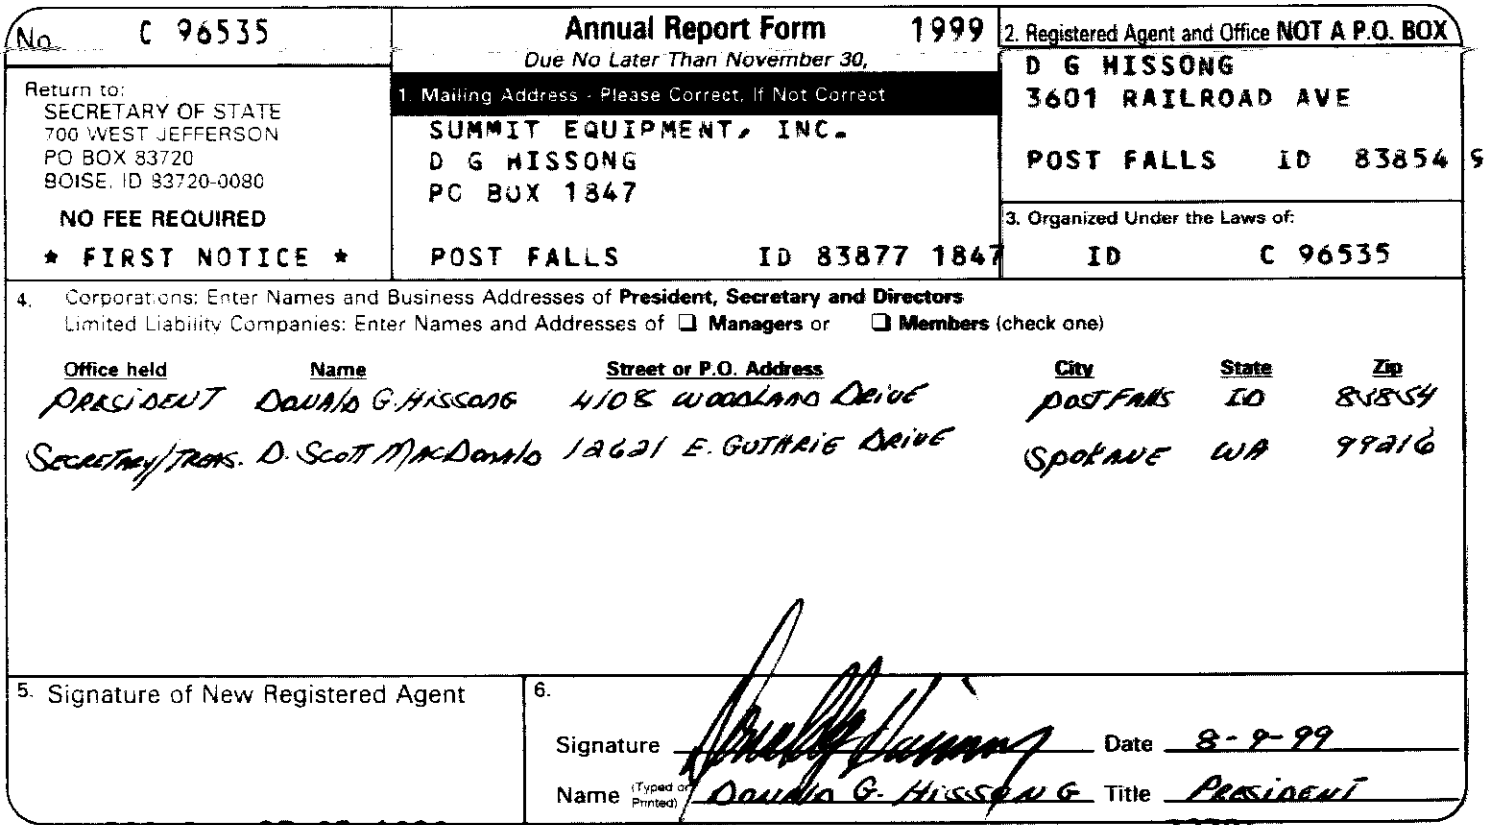 No. C 96535
Annual Report Form 1999
Due No Later Than November 30,
Return to:
SECRETARY OF STATE
700 WEST JEFFERSON
PO BOX 83720
BOISE, ID 83720-0080
NO FEE REQUIRED
* FIRST NOTICE *
1. Mailing Address - Please Correct, If Not Correct
SUMMIT EQUIPMENT, INC.
D G HISSONG
PO BOX 1847
POST FALLS ID 83877 1847
2. Registered Agent and Office NOT A P.O. BOX
D G HISSONG
3601 RAILROAD AVE
POST FALLS ID 83854
3. Organized Under the Laws of:
ID C 96535
4. Corporations: Enter Names and Business Addresses of President, Secretary and Directors
Limited Liability Companies: Enter Names and Addresses of ❑ Managers or ❑ Members (check one)
Office held Name Street or P.O. Address City State Zip
PRESIDENT DONALD G. HISSONG 4108 WOODLAND DRIVE POST FALLS ID 83854
SECRETARY/TREAS. D. SCOTT MACDONALD 12621 E. GUTHRIE DRIVE SPOKANE WA 99216
5. Signature of New Registered Agent
6.
Signature Date 8-9-99
Name (Typed or Printed) DONALD G. HISSONG Title PRESIDENT